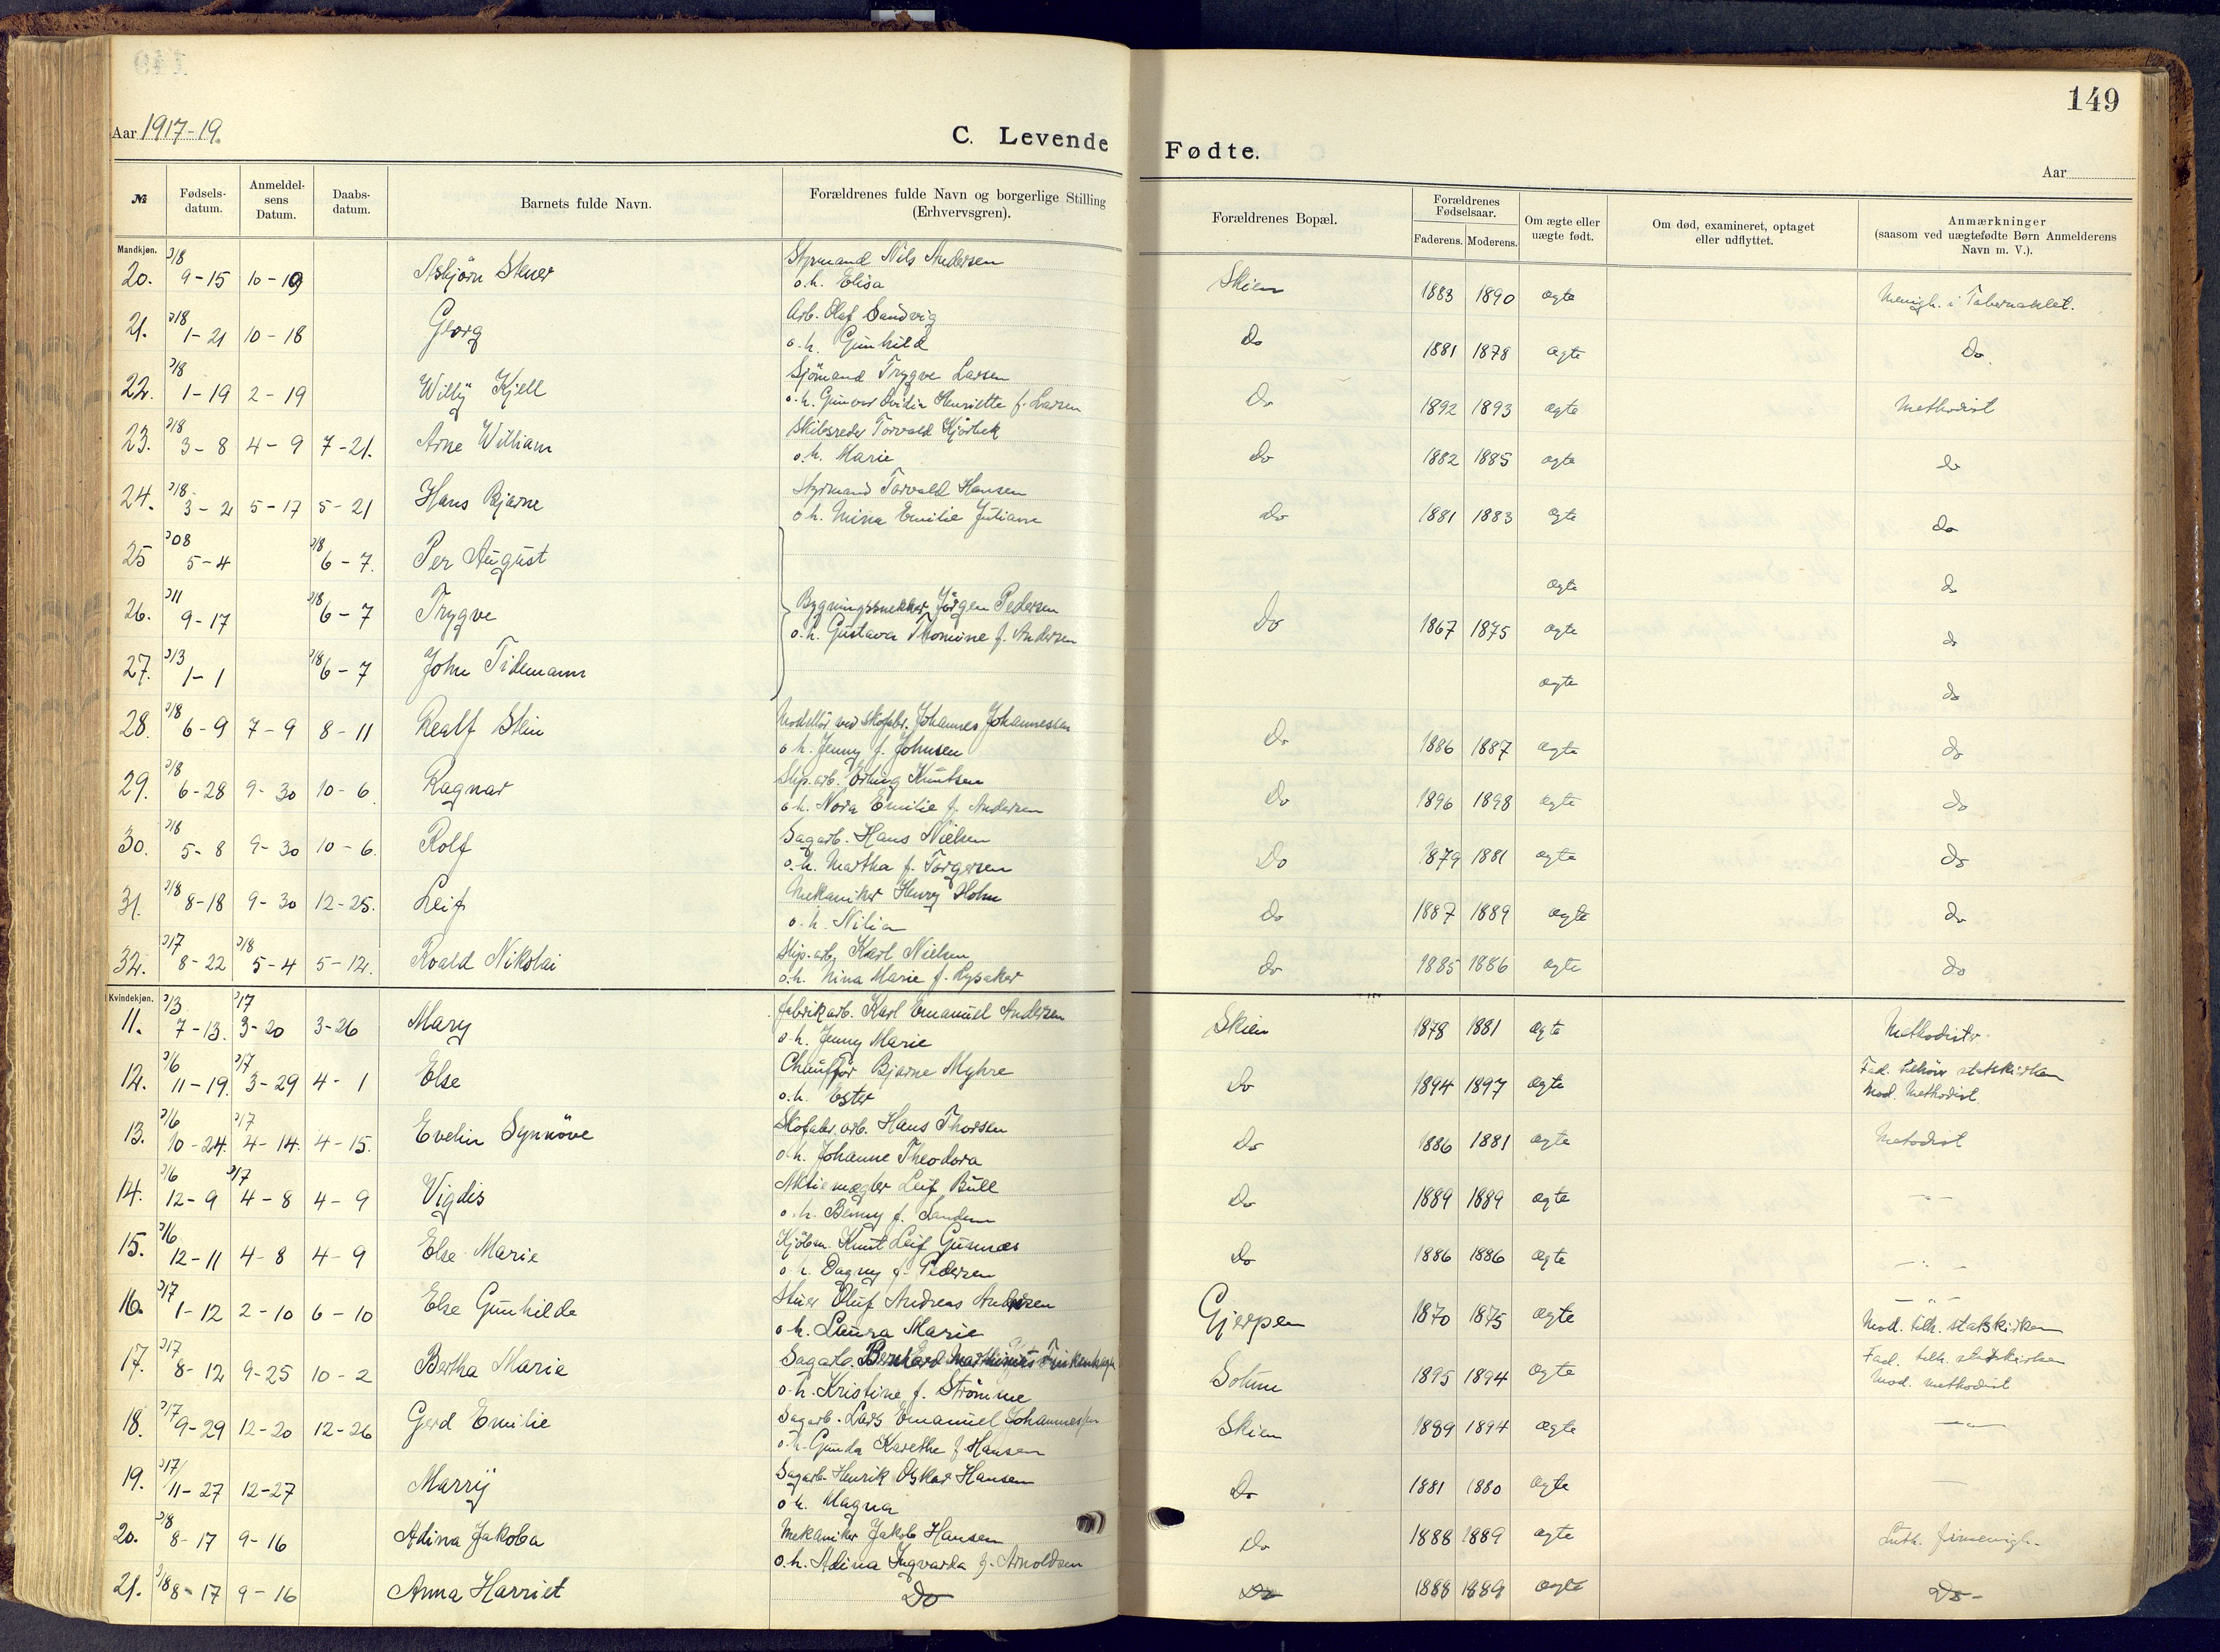 149
Aar 1917-19.
C. Levende
Fødte.
Aar
№
Fødsels-
datum.
Anmeldel-
sens
Datum.
Daabs-
datum.
Barnets fulde Navn.
Forældrenes fulde Navn og borgerlige Stilling
(Erhvervsgren).
Forældrenes Bopæl.
Forældrenes
Fødselsaar.
Faderens. Moderens.
Om ægte eller
uægte født.
Om død, examineret, optaget
eller udflyttet.
Anmærkninger
(saasom ved uægtefødte Børn Anmelderens
Navn m. V.).
Mandkjøn.
20. 9-15 10-19 Asbjørn Styrmand Nils Andersen
o.h. Elisa Skien 1883 1890 ægte Menigh. i Tabernaklet.
21. 1-21 10-18 Georg Arb. Olaf Sandvig
o.h. Gunhild Do 1881 1878 ægte Do.
22. 1-19 2-19 Willy Kjell Sjömand Trygve Larsen
o.h. Henriette f. Larsen Do 1892 1893 ægte Methodist
23. 3-8 4-9 7-21. Arne William Skibsreder Torvald
o.h. Marie Do 1882 1885 ægte do
24. 3-2 5-17 5-21 Hans Bjarne Styrmand Torvald Hansen
o.h. Emilie Juliane Do 1881 1883 ægte do
25 5-4 6-7. Per August ægte do
26. 9-17 6-7 Trygve Bygningssnekker Jörgen Pedersen
o.h. Gustava Thomine f. Andersen Do 1867 1875 ægte do
27. 1-1 6-7 John Tidemann ægte do
28. 6-9 7-9 8-11 Realf Stein Modellör ved Skofabr. Johannes Johannessen
o.h. Jenny f. Johnsen Do 1886 1887 ægte do
29. 6-28 9-30 10-6 Ragnar Slip.arb. Erling Knutsen
o.h. Nora Emilie f. Andersen Do 1896 1898 ægte do
30. 5-8 9-30 10-6. Rolf Sagarb. Hans Nielsen
o.h. Martha f. Torgersen Do 1879 1881 ægte do
31. 8-18 9-30 12-25. Leif Mekaniker Henry Holm
o.h. Nilia Do 1887 1889 ægte do
32. 8-22 5-4 5-12. Roald Nikolai Slip.arb. Karl Nielsen
o.h. Nina Marie f. Do 1885 1886 ægte do
Kvindekjøn.
11. 7-13. 3-20 3-26 Mary Fabrikarb. Karl Emanuel Andersen
o.h. Jenny Marie Skien 1878 1881 ægte Methodister
12. 11-19. 3-29 4-1 Else Chaufför Bjarne Myhre
o.h. Ester Do 1894 1897 ægte Fad. tilhörer statskirken
Mod. Methodist.
13. 10-24. 4-14. 4-15. Evelin Synnöve Skofabr.arb. Hans Thorsen
o.h. Johanne Theodora Do 1886 1881 ægte Metodist
14. 12-9 4-8 4-9 Vigdis Aktiemægler Leif Bull
o.h. Benny f. Do 1889 1889 ægte
15. 12-11 4-8 4-9 Else Marie Kjöbm. Knut Leif
o.h. Dagny f. Pedersen Do 1886 1886 ægte
16. 1-12 2-10 6-10 Else Gunhilde Oluf Andreas Andersen
o.h. Laura Marie Gjerpen 1870 1875 ægte Mod. tilh. statskirken
17. 8-12 9-25 10-2 Bertha Marie Sagarb. Bernhard
o.h. Kristine f. Strömme Solum 1895 1894 ægte Fad. tilh. statskirken
Mod. methodist
18. 9-29 12-20 12-26 Gerd Emilie Sagarb. Lars Emanuel Johannessen
o.h. Gunda Karethe f. Hansen Skien 1889 1894 ægte
19. 11-27 12-27 Marrij Sagarb. Henrik Oskar Hansen
o.h. Magna Do 1881 1880 ægte
20. 8-17 9-16 Adina Jakoba Mekaniker Jakob Hansen
o.h. Adina Ingvarda f. Arnoldsen Do 1888 1889 ægte Luth. frimenigh.
21. 8-17 9-16 Anna Harriet Do Do 1888 1889 ægte Do